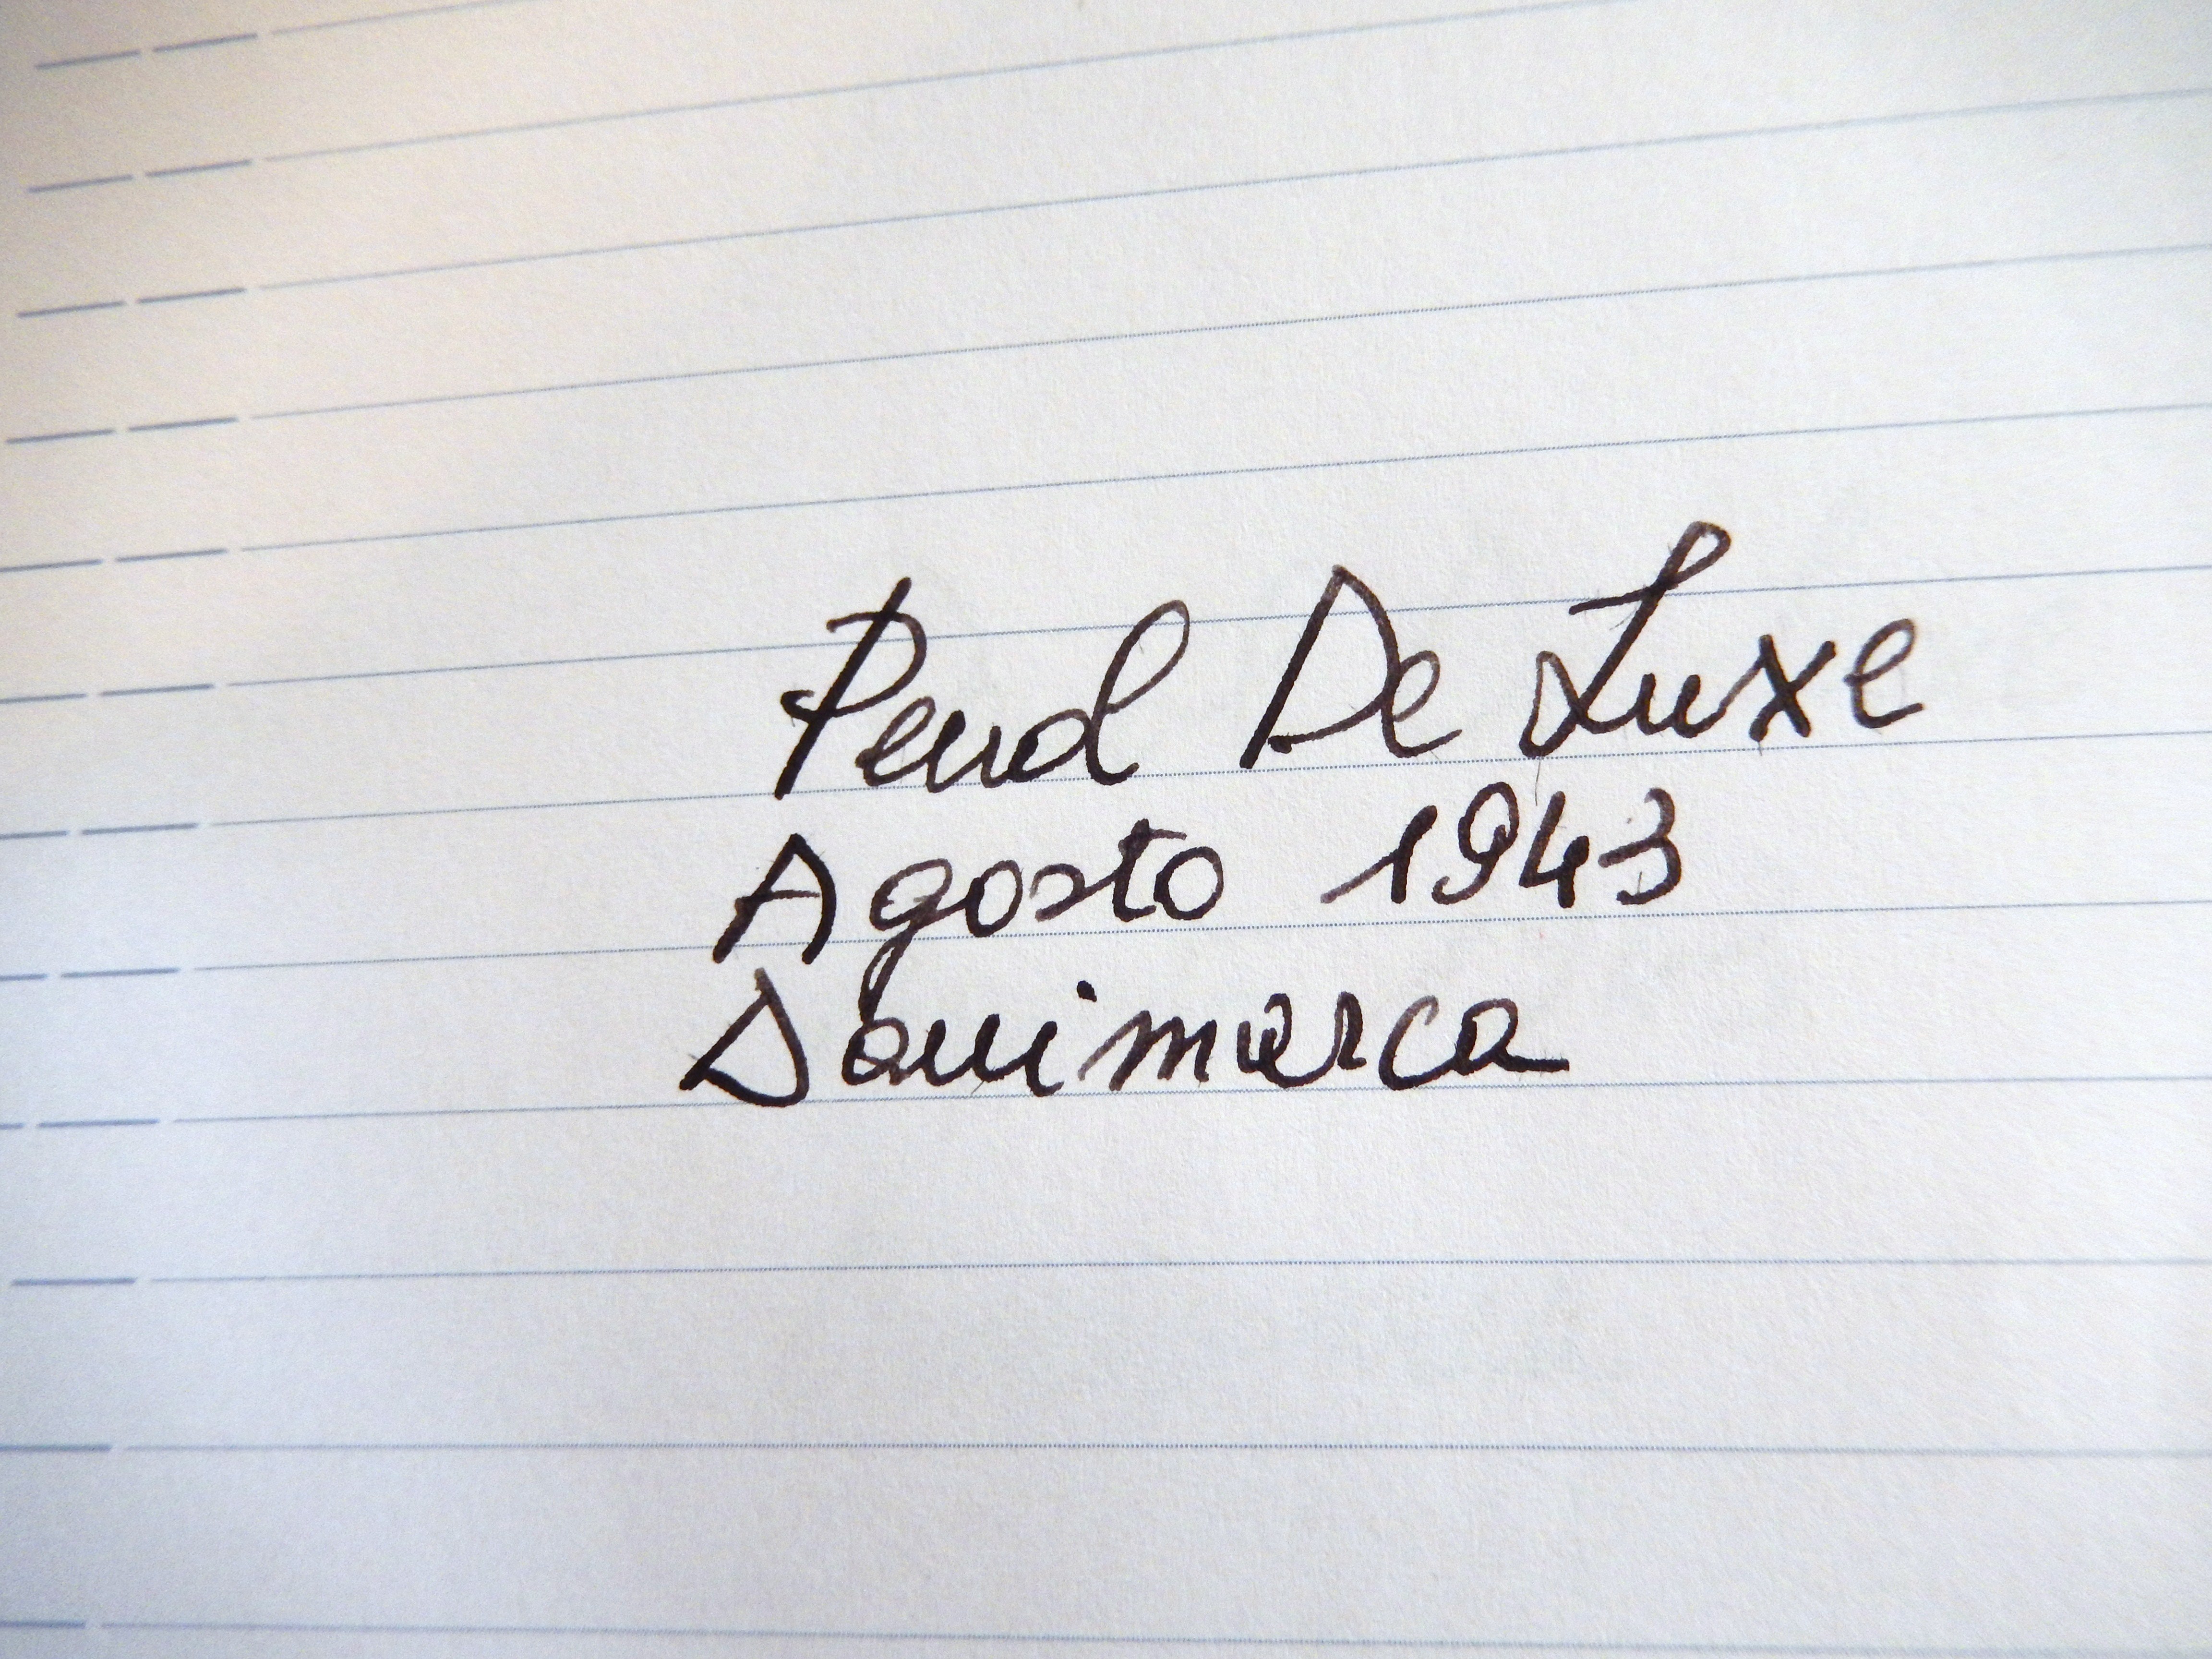 Penol De Luxe
Agosto 1943
Danimarca